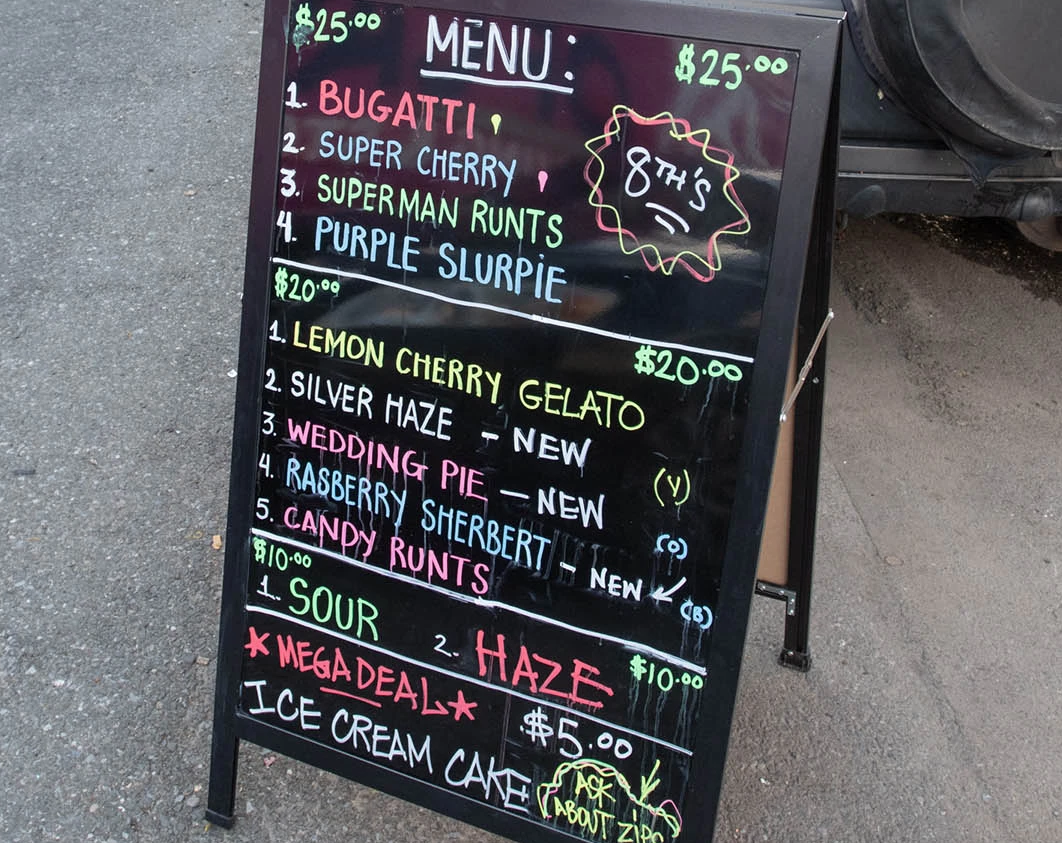 $25.00 MENU: $25.00
1. BUGATTI
2. SUPER CHERRY
3. SUPERMAN RUNTS
4. PURPLE SLURPiE
8TH'S
$20.00 $20.00
1. LEMON CHERRY GELATO
2. SILVER HAZE - NEW
3. WEDDING PIE - NEW (Y)
4. RASBERRY SHERBERT - NEW (O)
5. CANDY RUNTS (B)
$10.00 $10.00
1. SOUR 2. HAZE
*MEGA DEAL* $5.00
ICE CREAM CAKE
ASK
ABOUT ZiPS